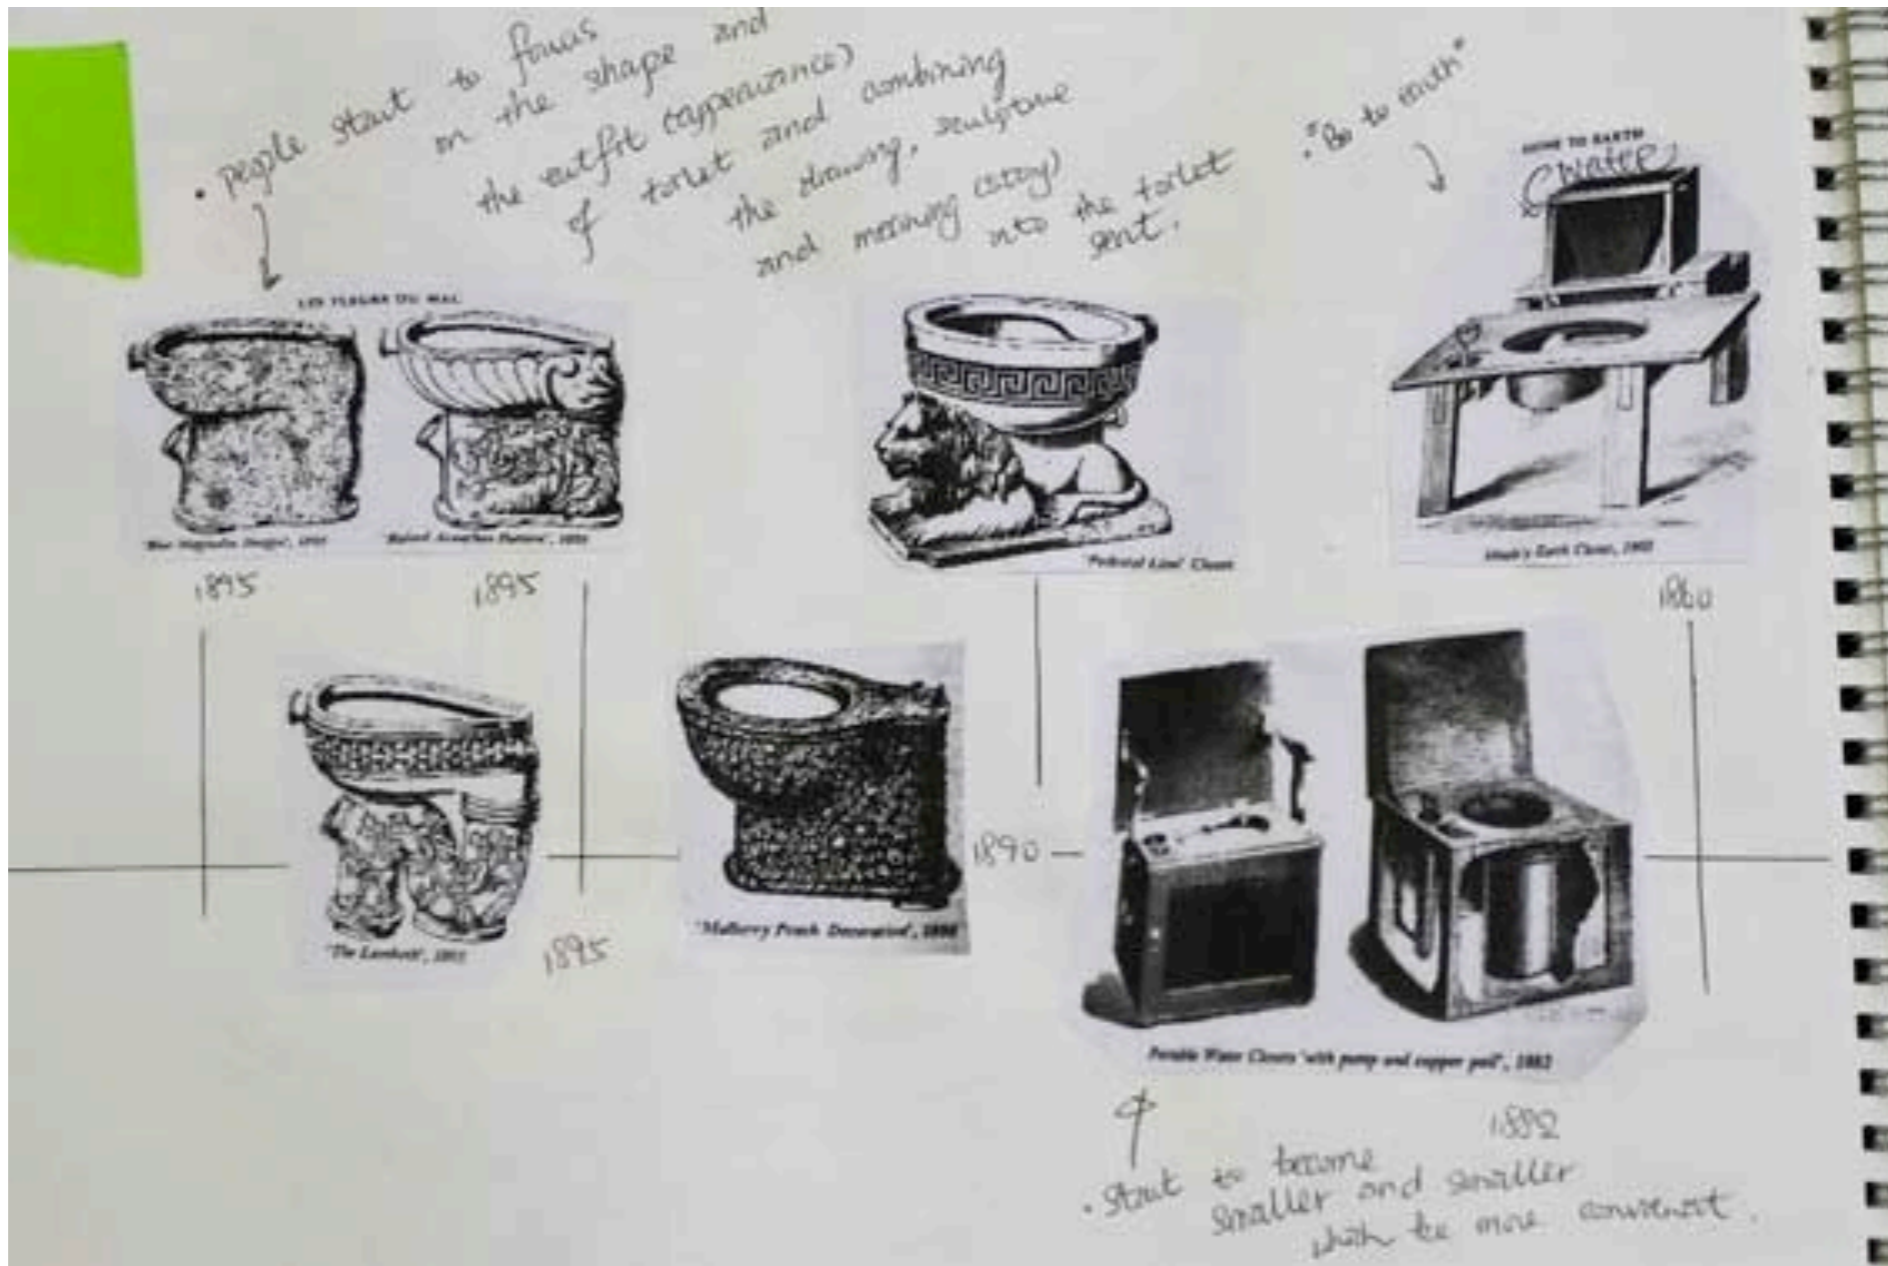 • people start to focus
on the shape and
the outfit (appearance)
of toilet and combining
the drawing, sculpture
and meaning (story)
into the toilet
seat.
LES FLEURS DU MAL
'Blue Magnolia Design', 1895
'Raised Acanthus Pattern', 1895
1895
1895
'Pedestal Lion' Closet
"Go to earth"
(water)
DOWN TO EARTH
Earth Closet, 1860
1860
'The Lambeth', 1895
1895
'Mulberry Peach Decorated', 1890
1890
Portable Water Closets 'with pump and copper pail', 1882
1882
• Start to become
smaller and smaller
which be more convenient.